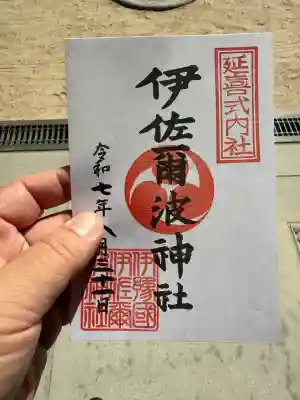 延喜式内社
伊佐爾波神社
令和七年八月三十一日
伊豫國
伊佐爾
波神社